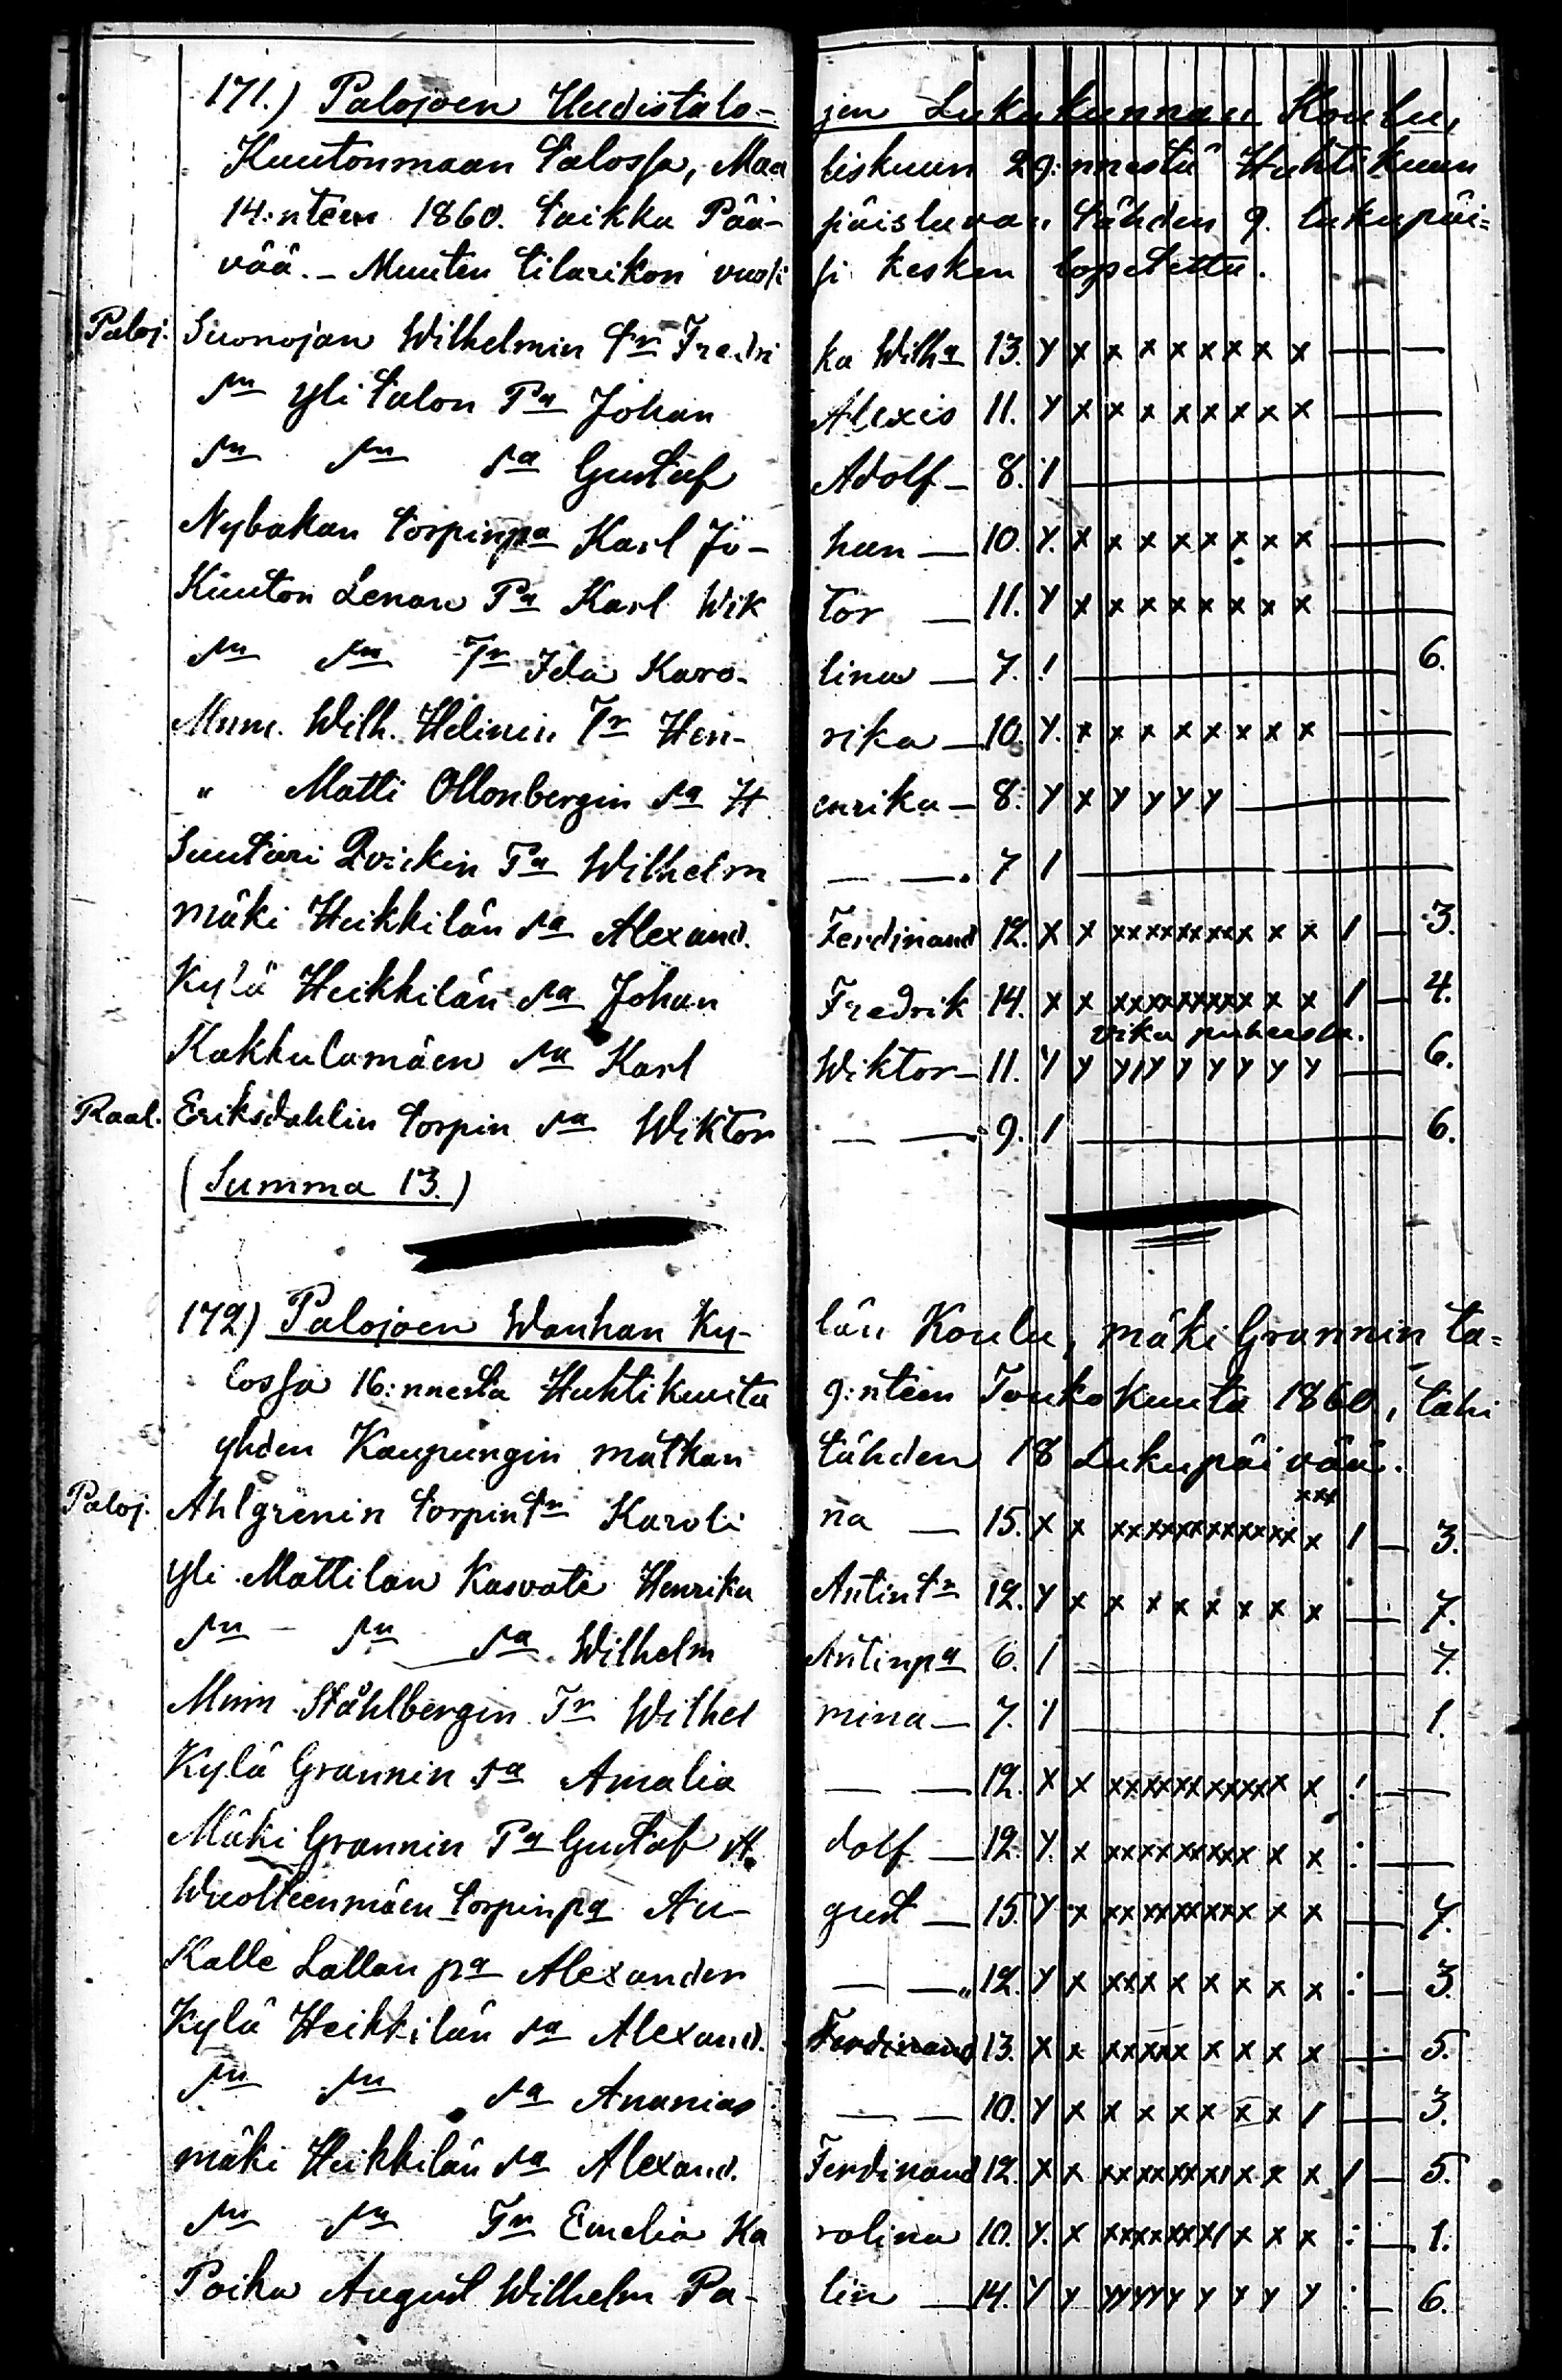 171.) Palojoen Uudistalo- jen Lukukunnan Koulu,
Kuutonmaan talossa, Maa liskuun 29:nnestä Huhtikuun
14:nteen 1860. taikka Pää- siäisluvan tähden 9. lukupäi-
vää. – Muuten tilarikon vuoksi kesken lopetettu.
Paloj. Suonojan Wilhelmin tr Fredri ka Wilha 13. y x x x x x x x x — —
sn yli talon Pa Johan Alexis 11. y x x x x x x x x —
sn sn sa Gustaf Adolf – 8. y —
Nybakan torpinpa Karl Jo- han — 10. y. x x x x x x x x —
Kuuton Lenan Pa Karl Wik tor — 11. y x x x x x x x x —
sn sn Tr Ida Karo- lina — 7. ! — 6.
Mum. Wilh. Helinin Tr Hen- rika — 10. y. x x x x x x x x —
" Matti Ollonbergin sa H enrika – 8. y x y y y y —
Suutari Qvickin Pa Wilhelm — —. 7 / —
mäki Heikkilän sa Alexand. Ferdinand 12. x x xxxxxxxxx x x / – 3.
Kylä Heikkilän sa Johan Fredrik 14. x x xxxxxxxxx x x / – 4.
vika puheesta.
Kakkulamäen sa Karl Wiktor – 11. y y y/y y y y y y — 6.
Raal. Eriksdahlin torpin sa Wiktor — —. 9. / — 6.
(Summa 13.)
172) Palojoen Wanhan Ky- län Koulu, mäki Grannin ta-
lossa 16:nnesta Huhtikuuta 9:nteen Toukokuuta 1860, tahi
yhden Kaupungin matkan tähden 18 Lukupäivää.
xxx
Paloj. Ahlgrenin torpin tr Karoli na — 15. x x xxxxxxxxxxxx x / – 3.
yli Mattilan Kasvati Henrika Antin tr 12. y x x x x x x x x — 7.
sn – sn sa Wilhelm Antinpa 6. / — 7.
Mum Ståhlbergin Tr Wilhel mina — 7. y — 1.
Kylä Grannin sa Amalia — — 12. x x xxxxxxxxxx x x ! —
Mäki Grannin Pa Gustaf A. dolf — 12. y. x xxxxxxxxx x x : —
Wuolteenmäen torpinpa Au- gust — 15. y x xxxxxxxxx x x — 7.
Kalle Lallan pa Alexander — —" 12. y x xxx x x x x x : – 3.
Kylä Heikkilän sa Alexand. Ferdinand 13. x x xxxxx x x x x — 5.
sn sn sa Ananias — — 10. y x x x x x x x / — 3.
mäki Heikkilän sa Alexand. Ferdinand 12. x x xxxxxxx/x x x / – 5.
sn sn Tr Emelia Ka rolina 10. y. x xxxxxxx/ x x x : — 1.
Poika August Wilhelm Pa- lin — 14. y y yyyyy y y y y : – 6.